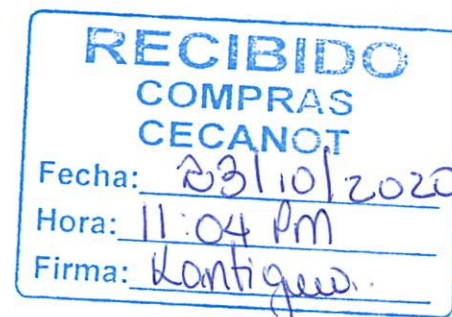 RECIBIDO
COMPRAS
CECANOT
Fecha: 23/10/2020
Hora: 11:04 PM
Firma: